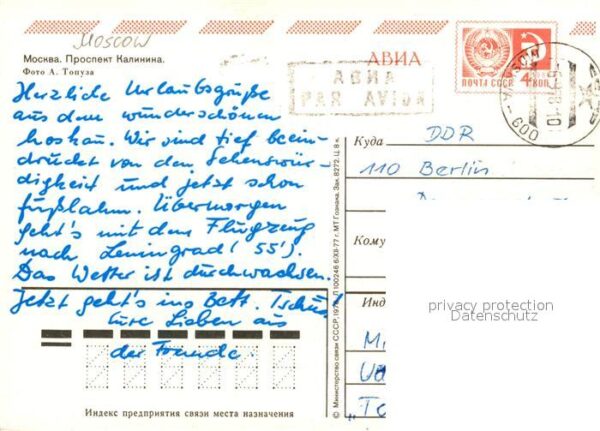 Moscow
Москва. Проспект Калинина.
Фото А. Топуза
АВИА
ПОЧТА СССР 4 КОП.
АВИА
PAR AVION
Herzliche Urlaubsgrüße
aus dem wunderschönen
Moskau. Wir sind tief beein-
druckt von den Sehenswür-
digkeit und jetzt schon
fußlahm. Übermorgen
geht's mit dem Flugzeug
nach Leningrad (55').
Das Wetter ist durchwachsen.
Jetzt geht's ins Bett. Tschüß!
Eure Lieben aus
der Fremde.
Индекс предприятия связи места назначения
© Министерство связи СССР, 197
П 100246 6/XII-77 г. МТ Гознака. Зак. 8272. Ц. 8 к.
Куда DDR
110 Berlin
Кому
Инд
privacy protection
Datenschutz